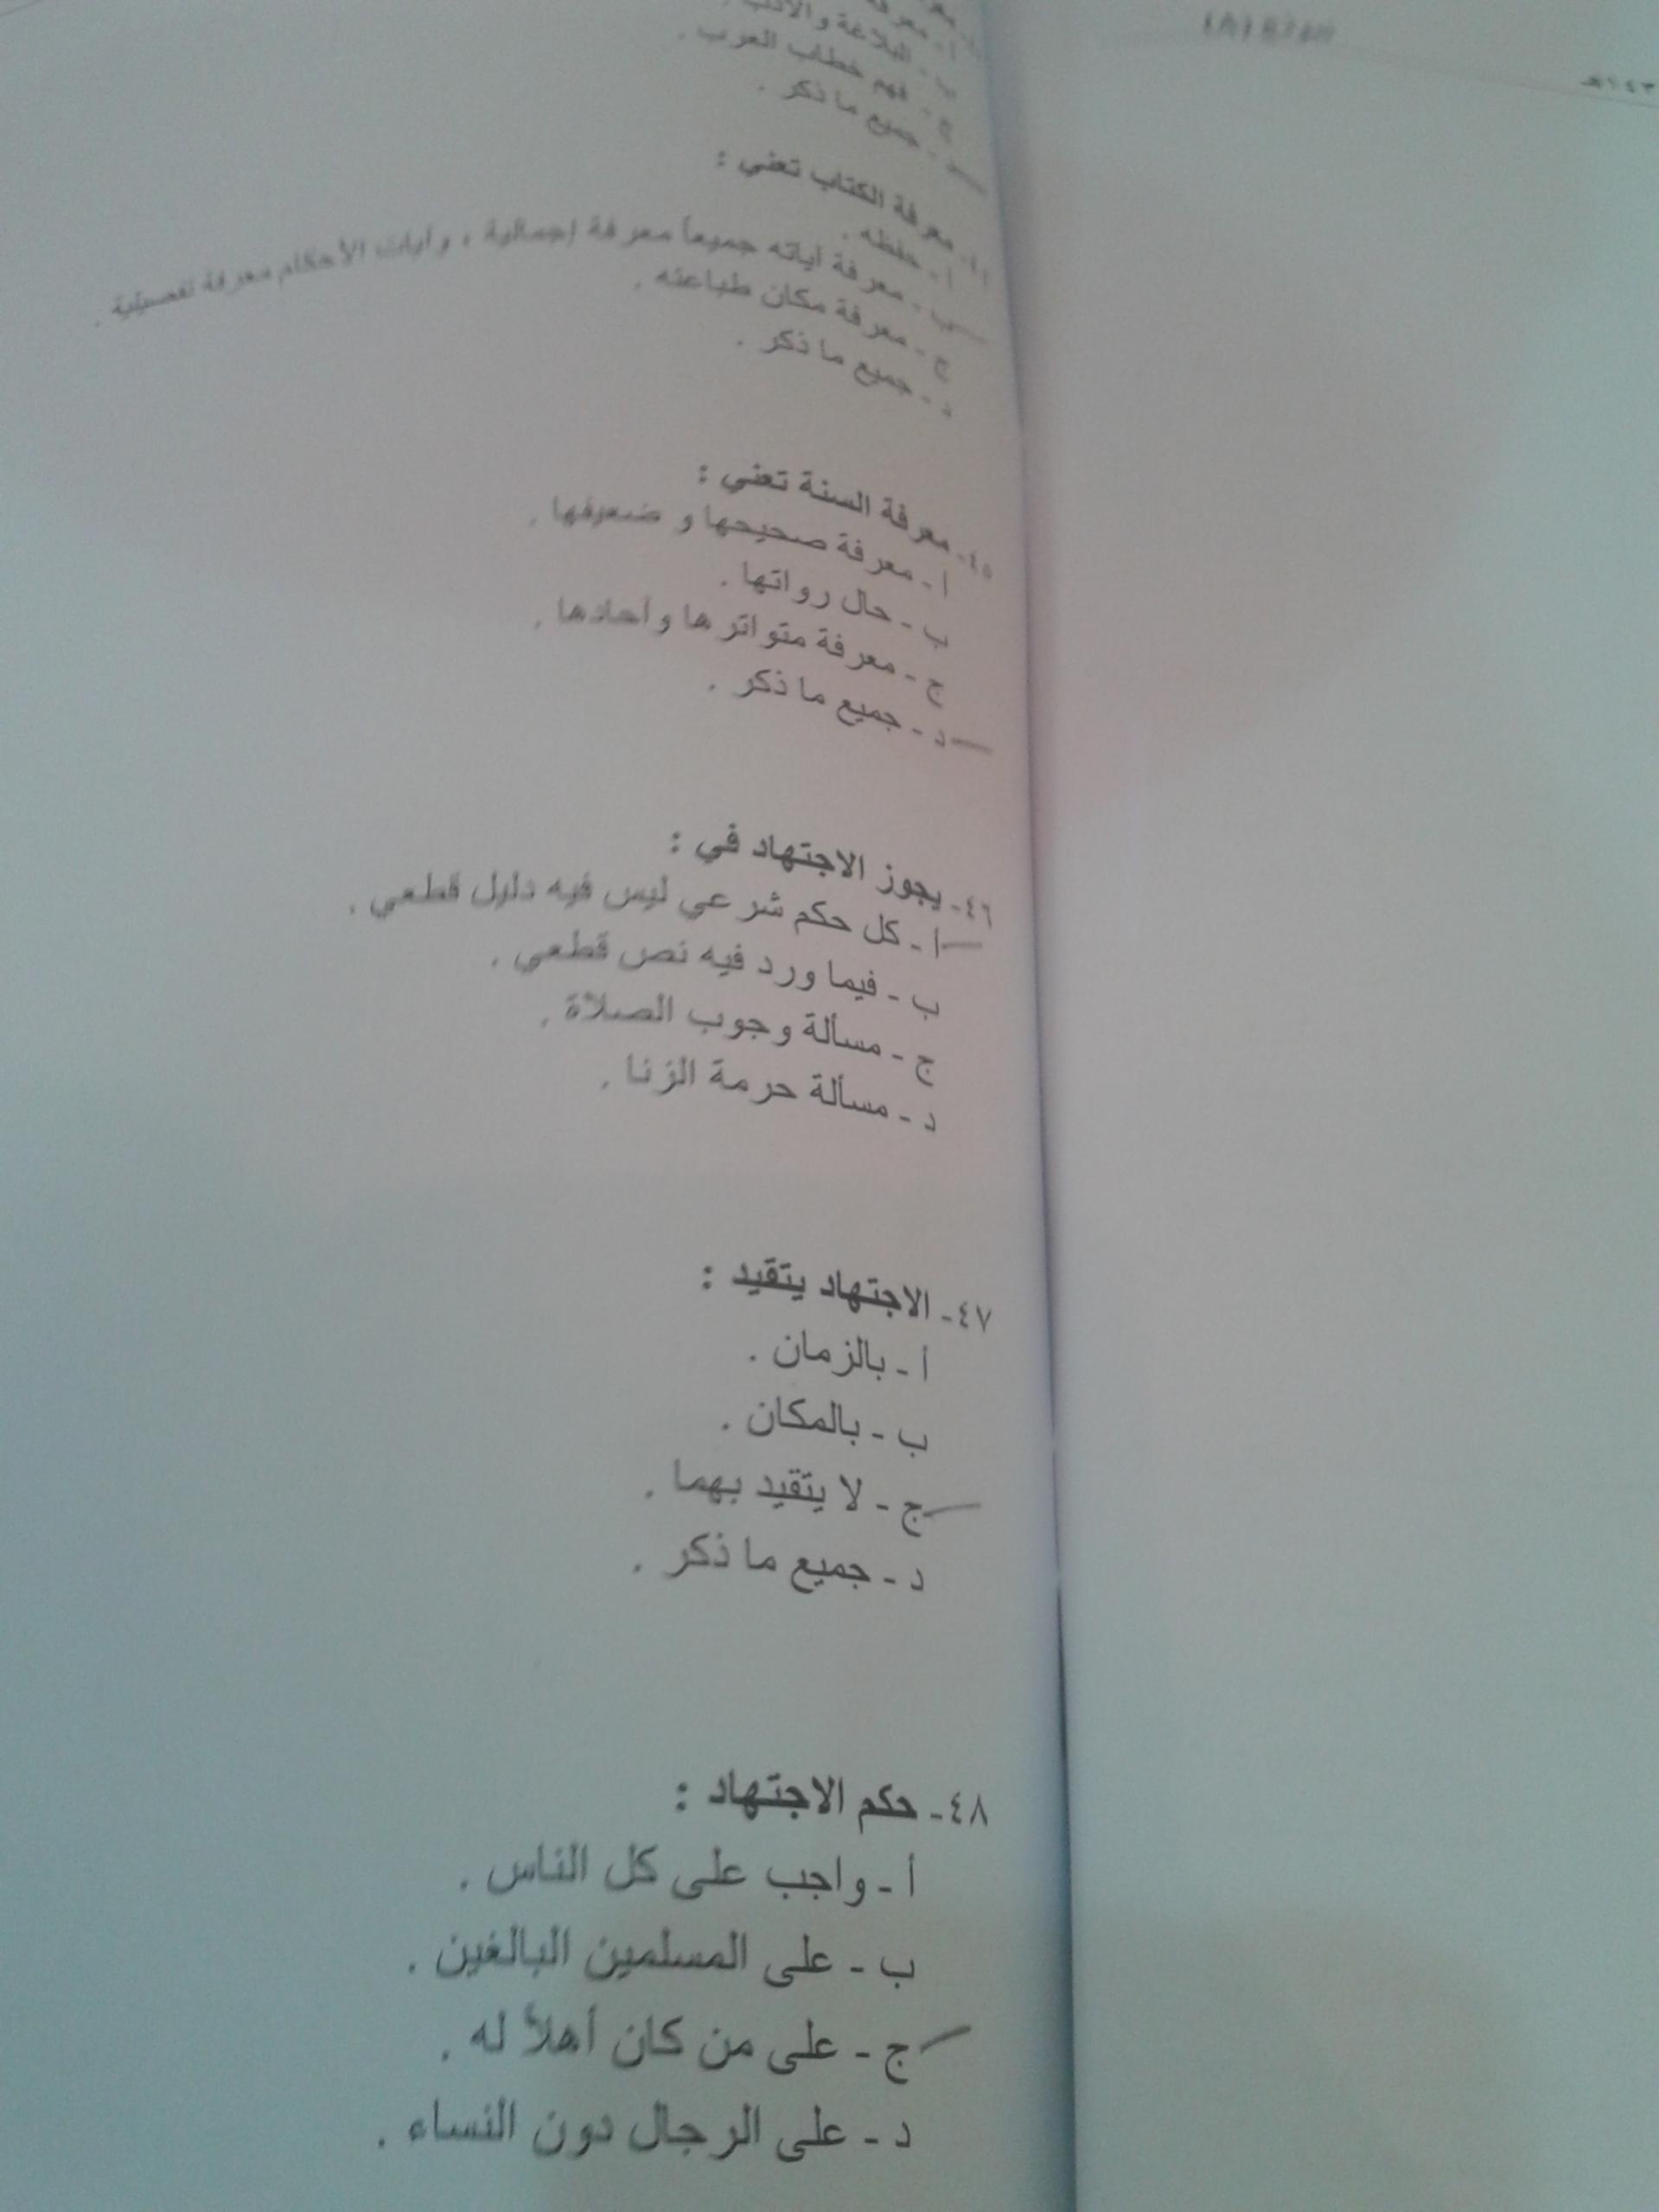 البلاغة والأدب
ج - فهم خطاب العرب .
د - جميع ما ذكر .
معرفة الكتاب تعني :
أ - حفظه .
ب - معرفة آياته جميعاً معرفة إجمالية ، وآيات الأحكام معرفة تفصيلية .
ج - معرفة مكان طباعته .
د - جميع ما ذكر .
٤٥- معرفة السنة تعني :
أ - معرفة صحيحها و ضعيفها .
ب - حال رواتها .
ج - معرفة متواترها وآحادها .
د - جميع ما ذكر .
٤٦- يجوز الاجتهاد في :
أ - كل حكم شرعي ليس فيه دليل قطعي .
ب - فيما ورد فيه نص قطعي .
ج - مسألة وجوب الصلاة .
د - مسألة حرمة الزنا .
٤٧- الاجتهاد يتقيد :
أ - بالزمان .
ب - بالمكان .
ج - لا يتقيد بهما .
د - جميع ما ذكر .
٤٨- حكم الاجتهاد :
أ - واجب على كل الناس .
ب - على المسلمين البالغين .
ج - على من كان أهلاً له .
د - على الرجال دون النساء .